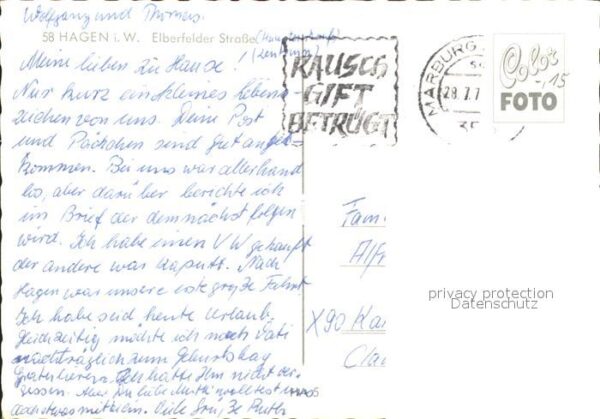 Wolfgang und Thomas.
58 HAGEN i. W. Elberfelder Straße
(Zentrum)
Meine lieben zu Hause!
Nur kurz ein kleines Lebens-
zeichen von uns. Deine Post
und Päckchen sind gut ange-
kommen. Bei uns war allerhand
los, aber darüber berichte ich
im Brief der demnächst folgen
wird. Ich habe einen VW gekauft
der andere war kaputt. Nach
Hagen war unsere erste große Fahrt
Ich habe seid heute Urlaub.
Gleichzeitig möchte ich noch Vati
nachträglich zum Geburtstag
Gratulieren. Ich hatte Ihn nicht ver-
gessen. Aber Du liebe Mutti wolltest
doch etwas mitteilen. Viele Grüße Ruth
RAUSCH
GIFT
BETRÜGT
MARBURG
28.7.7
355
Color
FOTO
15
Fam.
Alfr
X90 Ka
Cla
privacy protection
Datenschutz